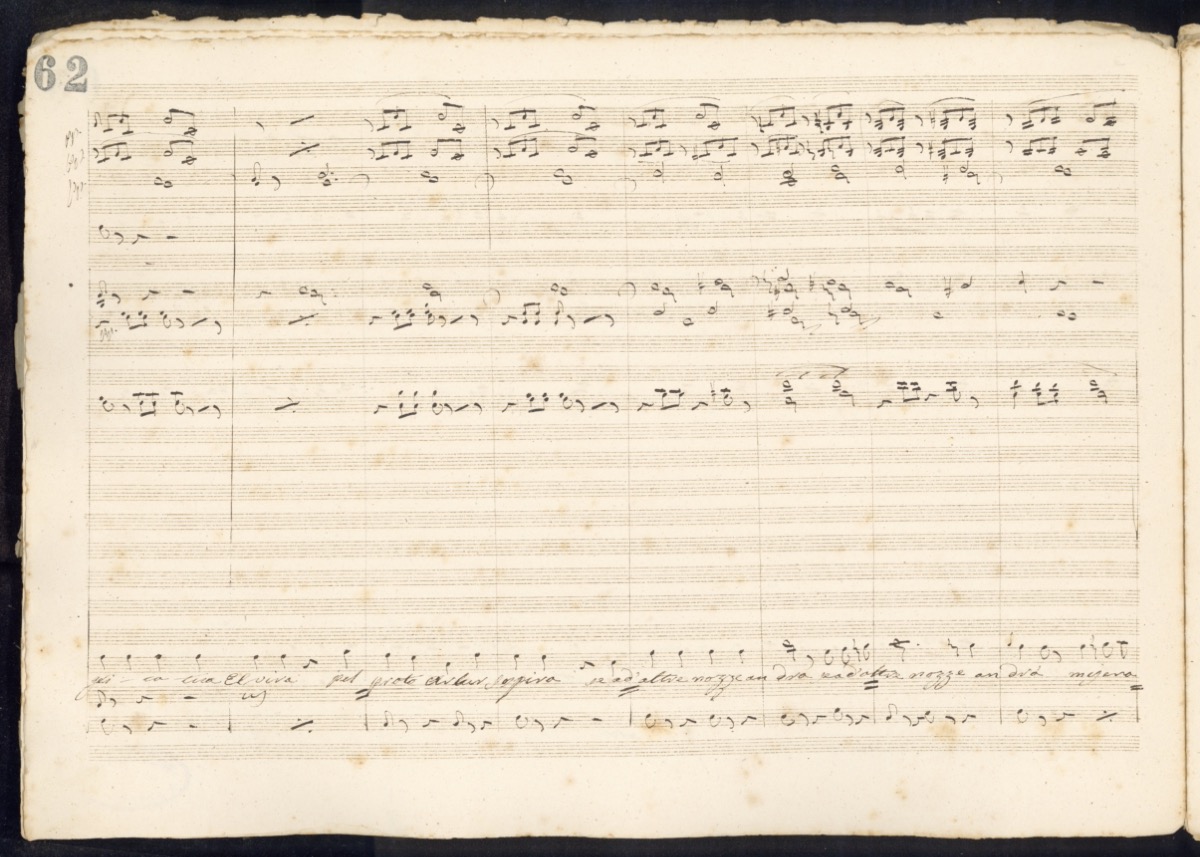 62
tua Elvira pel prode Artur sospira se ad altre nozze an drà se ad altre nozze an drà misera